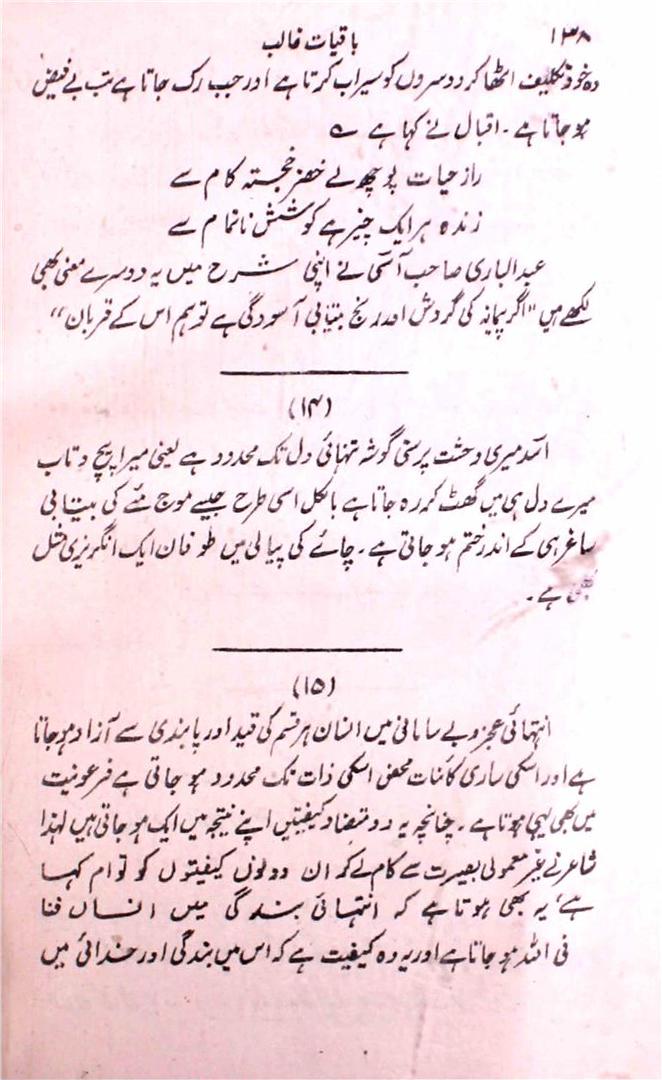 ۱۳۸
باقیات غالب
وہ خود تکلیف اٹھا کر دوسروں کو سیراب کرتا ہے اور جب رک جاتا ہے تب بے فیض
ہو جاتا ہے ۔ اقبال نے کہا ہے ؎
راز حیات پوچھ لے خضر خجستہ گام سے
زندہ ہر ایک چیز ہے کوشش ناتمام سے
عبدالباری صاحب آسی نے اپنی شرح میں یہ دوسرے معنی بھی
لکھے ہیں "اگر پیمانہ کی گردش اور رنج بیتابی آسودگی ہے تو ہم اس کے قربان"
(۱۴)
اسد میری وحشت پرستی گوشہ تنہائی دل تک محدود ہے یعنی میرا پیچ و تاب
میرے دل ہی میں گھٹ کر رہ جاتا ہے بالکل اسی طرح جیسے موج مئے کی بیتابی
ساغر ہی کے اندر ختم ہو جاتی ہے ۔ چائے کی پیالی میں طوفان ایک انگریزی مثل
بھی ہے ۔
(۱۵)
انتہائی عجز و بے سامانی میں انسان ہر قسم کی قید اور پابندی سے آزاد ہو جاتا
ہے اور اسکی ساری کائنات محض اسکی ذات تک محدود ہو جاتی ہے فرعونیت
میں بھی یہی ہوتا ہے ۔ چنانچہ یہ دو متضاد کیفیتیں اپنے نتیجہ میں ایک ہو جاتی ہیں لہذا
شاعر نے غیر معمولی بصیرت سے کام لے کر ان دونوں کیفیتوں کو توام کہا
ہے، یہ بھی ہوتا ہے کہ انتہائی بندگی میں انسان فنا
فی اللہ ہو جاتا ہے اور یہ وہ کیفیت ہے کہ اس میں بندگی اور خدائی میں